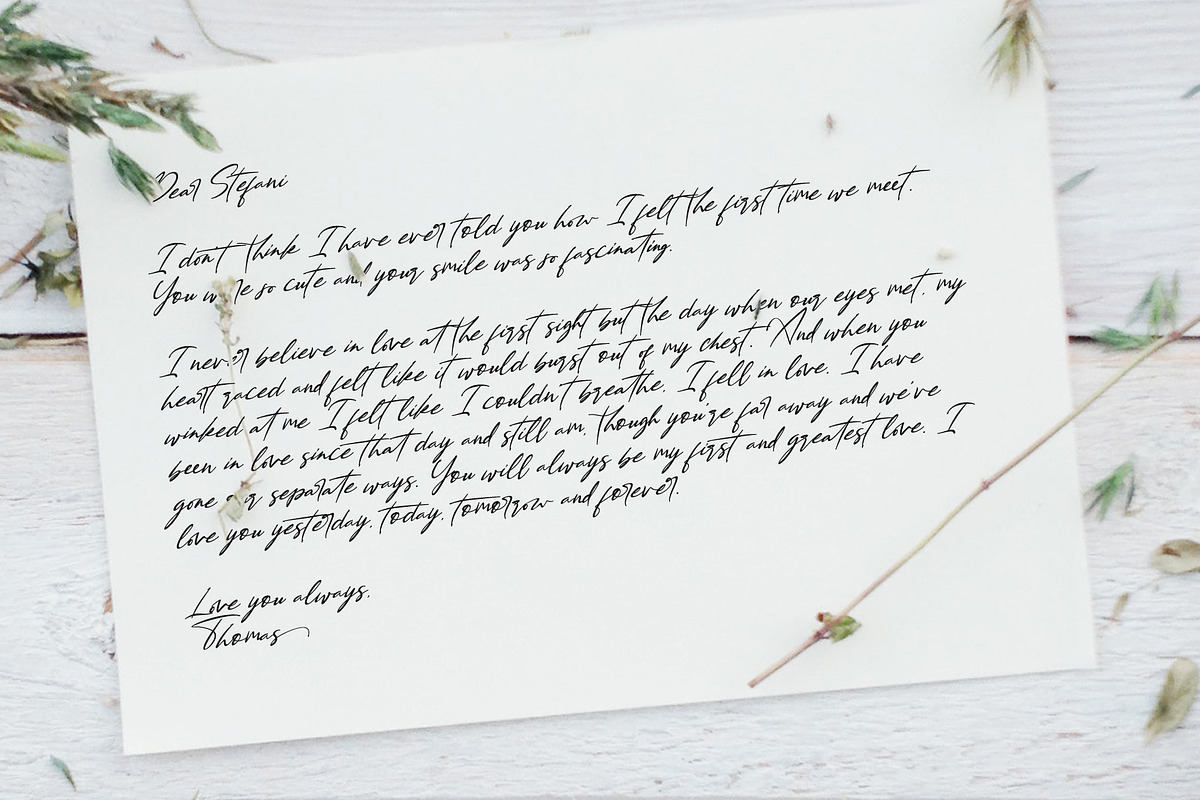 Dear Stefani
I don't think I have ever told you how I felt the first time we meet.
You were so cute and your smile was so fascinating.
I never believe in love at the first sight but the day when our eyes met, my
heart raced and felt like it would burst out of my chest. And when you
winked at me I felt like I couldn't breathe. I fell in love. I have
been in love since that day and still am. Though you're far away and we've
gone our separate ways. You will always be my first and greatest love. I
love you yesterday, today, tomorrow and forever.
Love you always.
Thomas